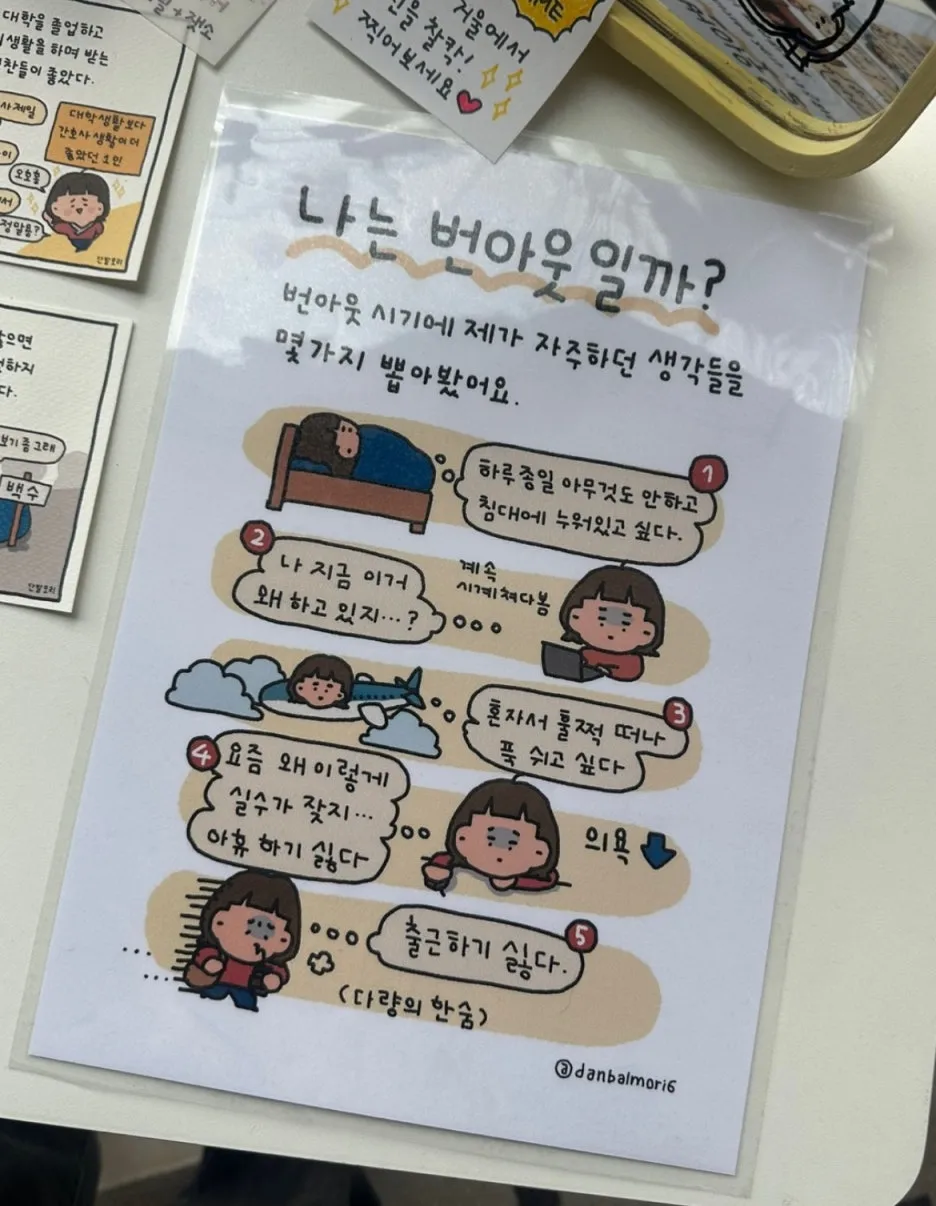 대학을 졸업하고
생활을 하며 받는
좋았다.
대학생활보다
간호사 생활이 더
좋았던 1인
오호홍
정말용?
단발모리
백수
단발모리
거울에서
찰칵!
찍어보세요
나는 번아웃일까?
번아웃 시기에 제가 자주하던 생각들을
몇가지 뽑아봤어요.
1
하루종일 아무것도 안하고
침대에 누워있고 싶다.
2
나 지금 이거
왜 하고 있지...?
계속
시계 쳐다봄
3
혼자서 훌쩍 떠나
푹 쉬고 싶다
4
요즘 왜 이렇게
실수가 잦지...
아휴 하기 싫다
의욕
5
출근하기 싫다.
(다량의 한숨)
@danbalmori6